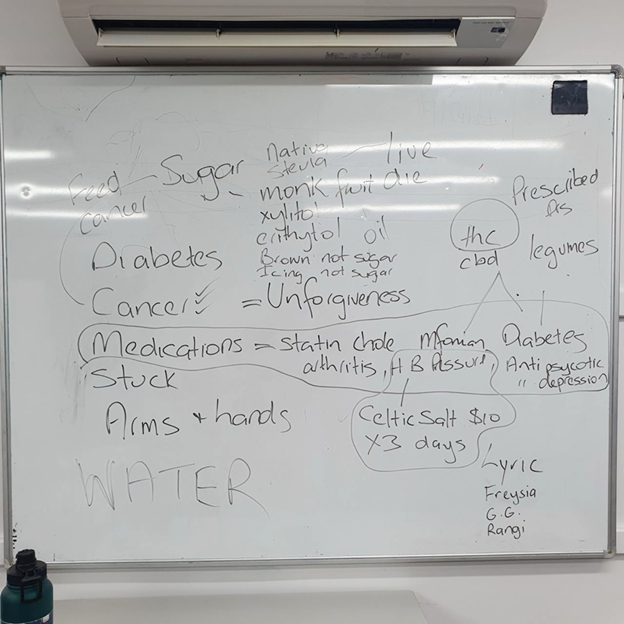 Feed
cancer
Sugar
Native
Stevia
live
monk fruit die
xylitol
erithytol oil
Brown not sugar
Icing not sugar
Prescribed
thc
cbd
legumes
Diabetes
Cancer = Unforgiveness
Medications = Statin chole Diabetes
arthritis, H B Pressure, Anti psycotic
" depression
Stuck
Arms + hands
Celtic Salt $10
X3 days
WATER
Lyric
Freysia
G.G.
Rangi